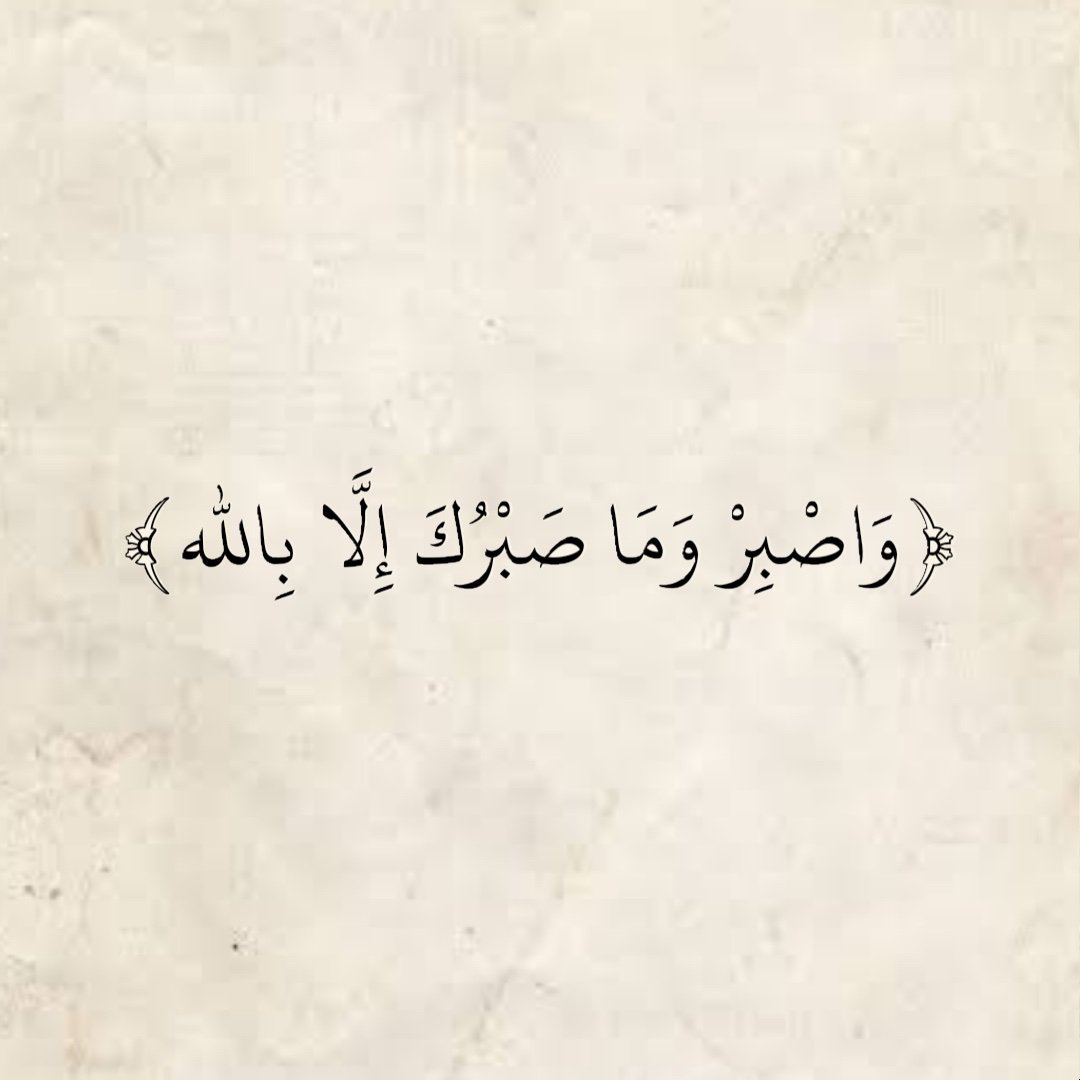 ﴿وَاصْبِرْ وَمَا صَبْرُكَ إِلَّا بِالله﴾